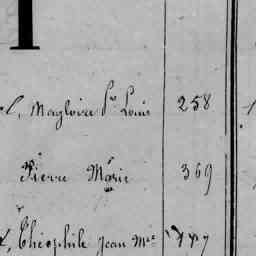 Magloire Ps Louis 258
Pierre Marie 369
Théophile Jean Mie